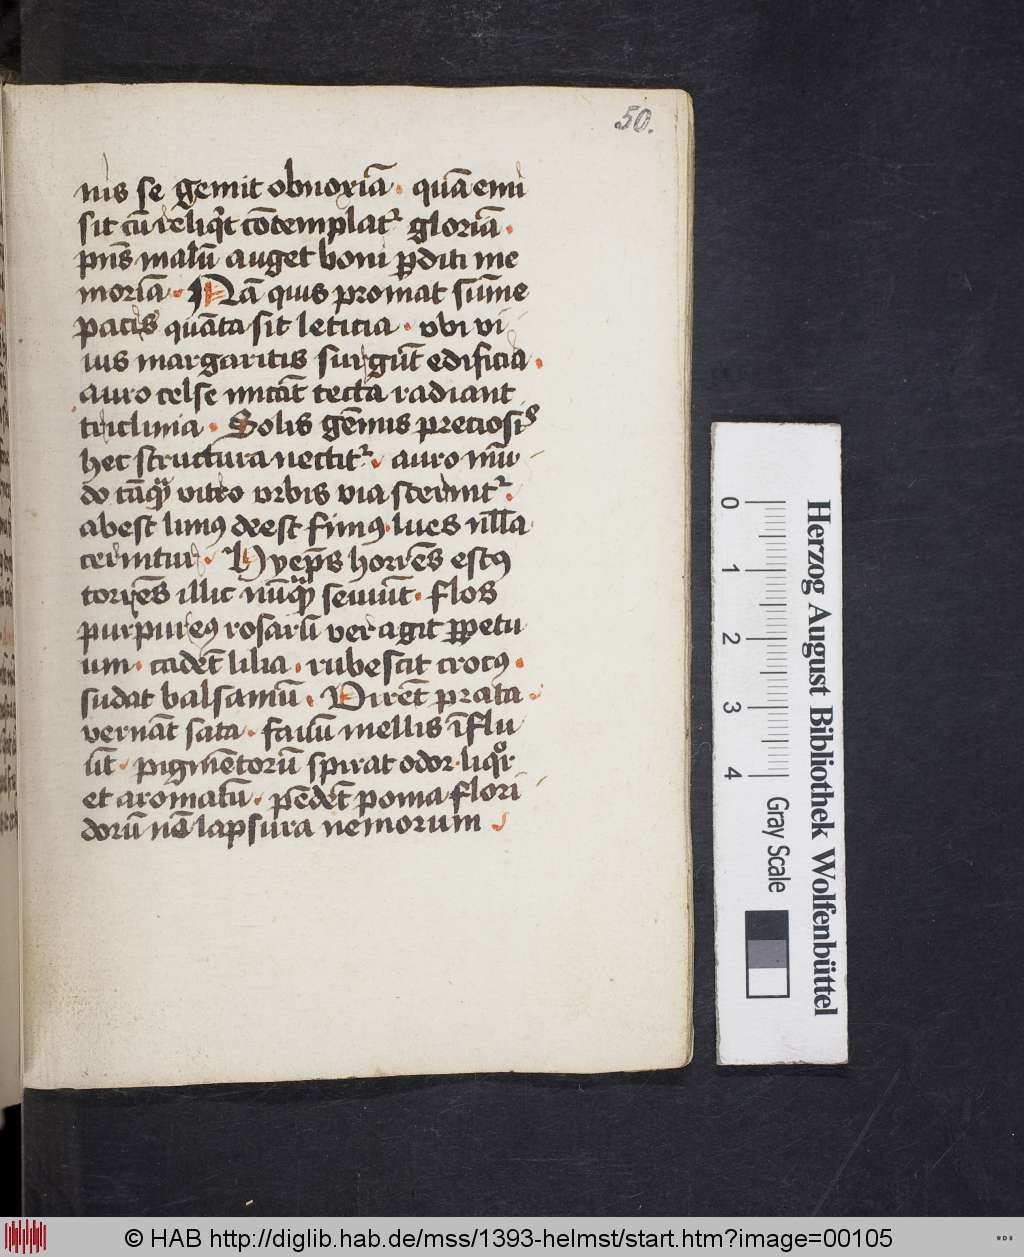 50.
nis se gemit obnoxiā. quā emi
sit cū reliq̄t cōtemplatʳ gloriā.
pn̄s malū auget boni ꝑditi me
moriā. Nā quis promat sūme
pacis quāta sit leticia. vbi vi
uis margaritis surgūt edificia.
auro celse micāt tecta radiant
triclinia. Solis gēmis preciosis
hec structura nectitʳ. auro mū
do tāqᷓ vitro vrbis via sternitʳ.
abest limꝰ deest fimꝰ lues nll̄a
cernitur. Hyep̄s horrēs estꝰ
torrēs illic nūqᷓ seuiūt. flos
purpureꝰ rosarū ver agit ꝑpetu
um. cādēt lilia. rubescit crocꝰ.
sudat balsamū. Virēt prata.
vernāt sata. fauū mellis īflu
ūt. pigmētorū spirat odor liqͦr
et aromatū. pēdēt poma flori
dorū nō lapsura nemorum
0 1 2 3 4
Gray Scale
Herzog August Bibliothek Wolfenbüttel
© HAB http://diglib.hab.de/mss/1393-helmst/start.htm?image=00105